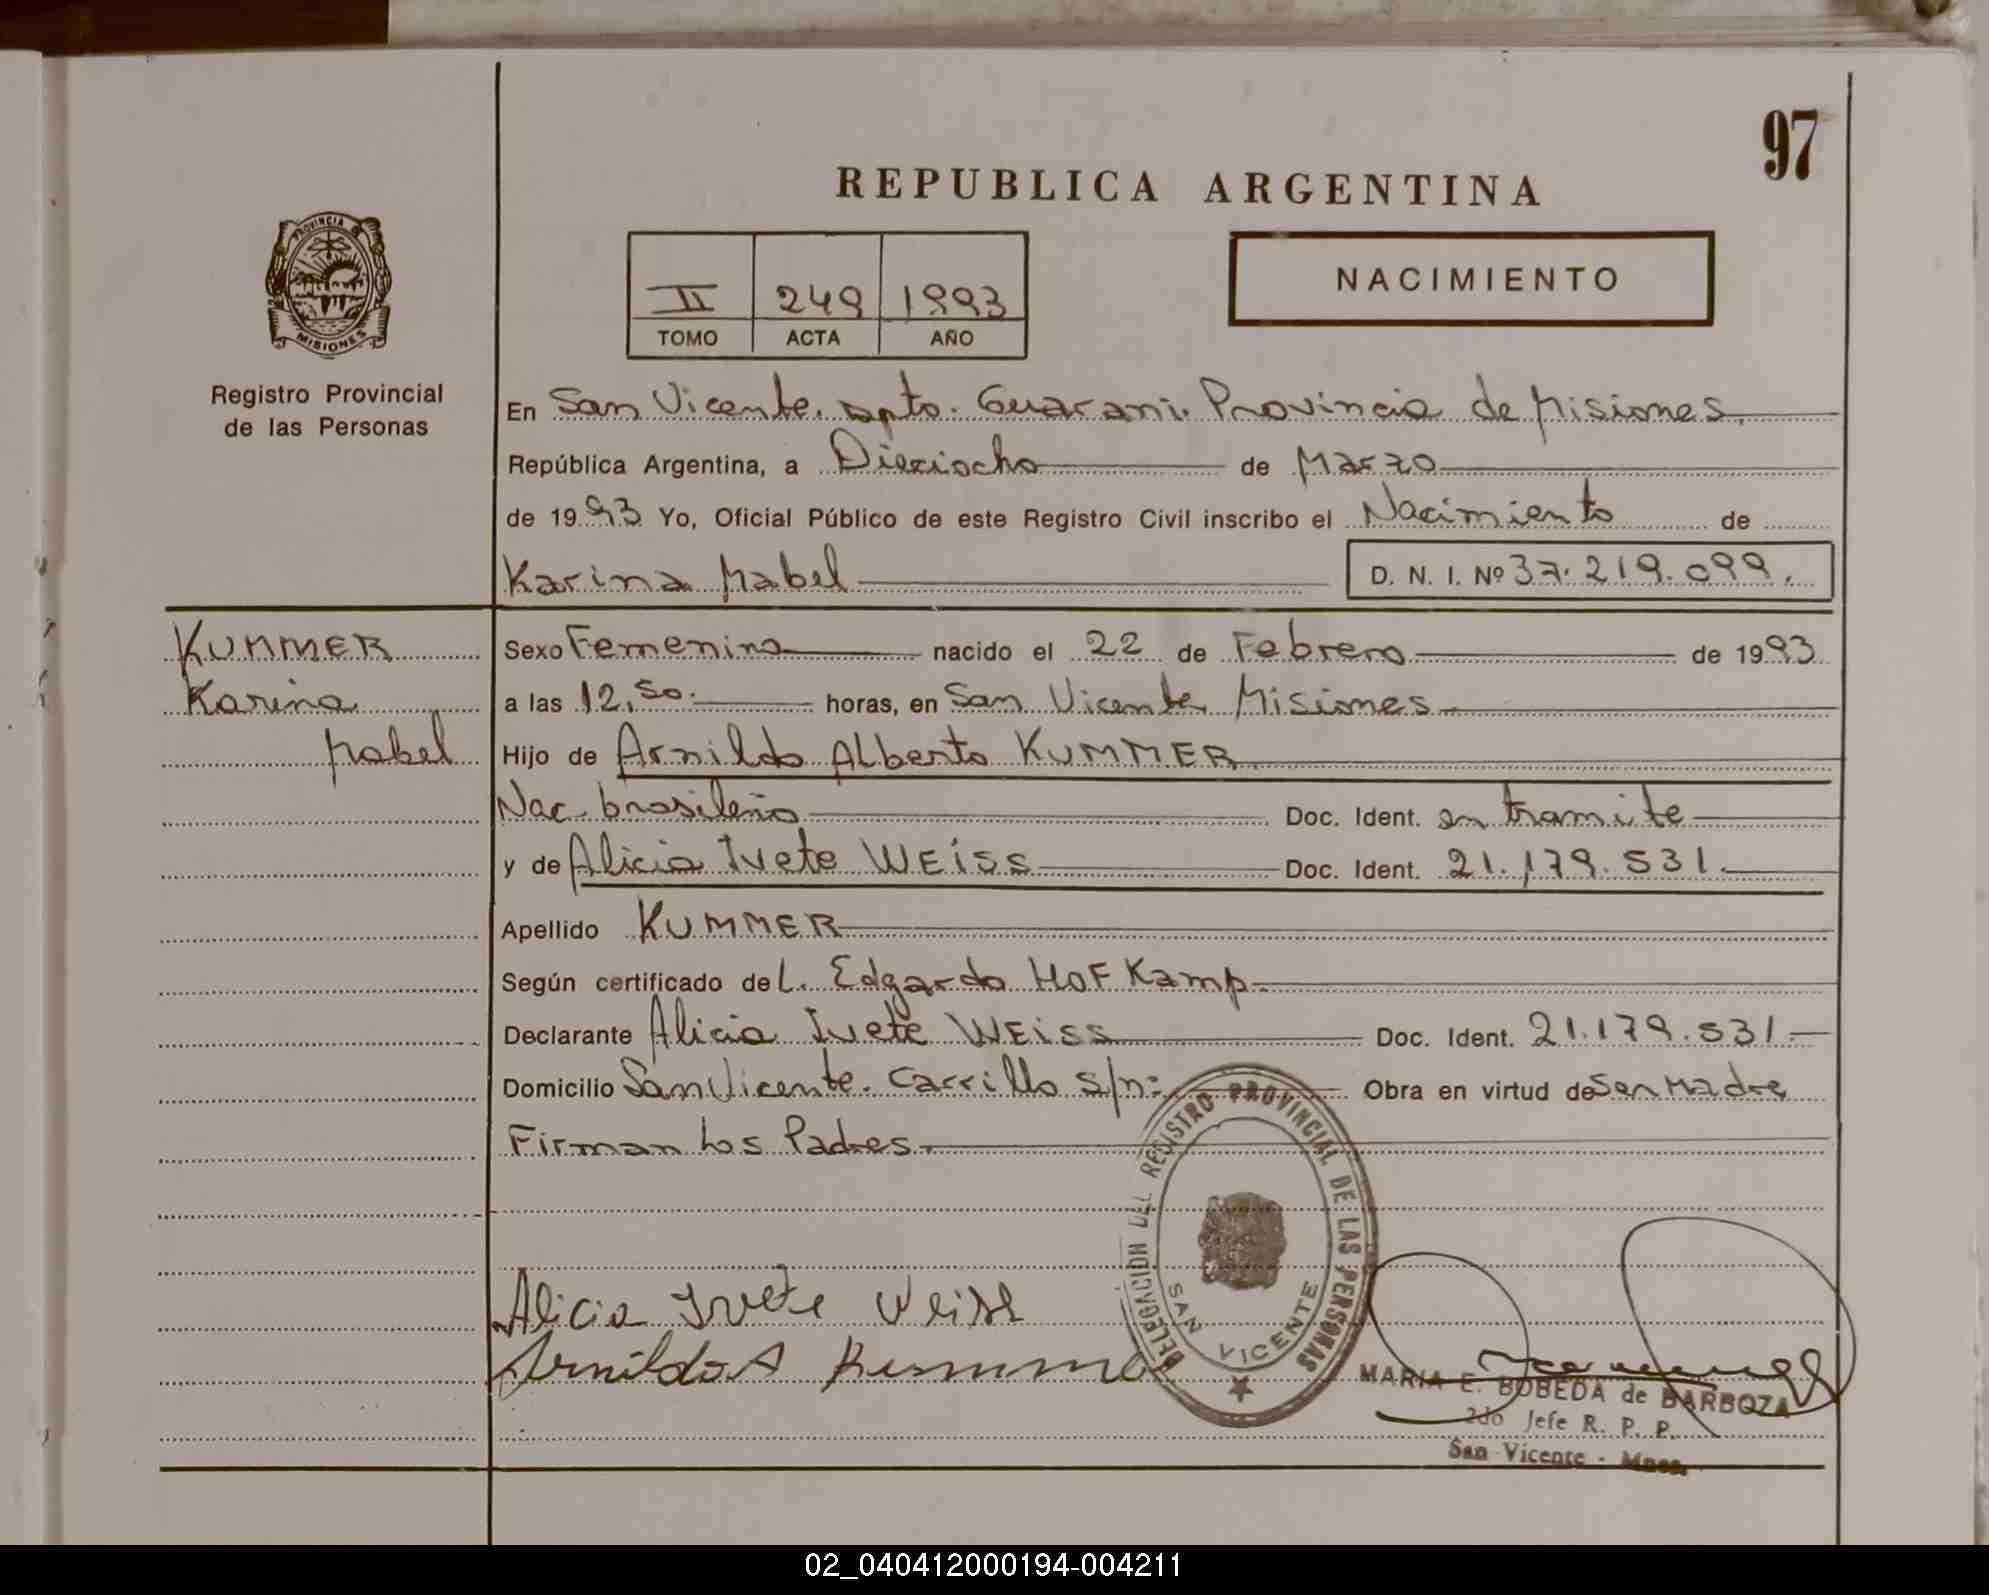 97
REPUBLICA ARGENTINA
PROVINCIA DE
MISIONES
Registro Provincial
de las Personas
II 249 1993
TOMO ACTA AÑO
NACIMIENTO
En San Vicente. Dpto. Guarani. Provincia de Misiones.
República Argentina, a Dieciocho de Marzo
de 1993 Yo, Oficial Público de este Registro Civil inscribo el Nacimiento de
Karina Mabel D. N. I. Nº 37.219.099.
KUMMER
Karina
Mabel
Sexo Femenino nacido el 22 de Febrero de 1993
a las 12,50. horas, en San Vicente Misiones
Hijo de Arnildo Alberto KUMMER
Nac. brasileño Doc. Ident. en tramite
y de Alicia Ivete WEiSS Doc. Ident. 21.179.531.
Apellido KUMMER
Según certificado de L. Edgardo HOFKamp
Declarante Alicia Ivete WEiSS Doc. Ident. 21.179.531.
Domicilio San Vicente. Carrillo s/n: Obra en virtud de Ser Madre
Firman Los Padres.
DELEGACION DEL REGISTRO PROVINCIAL DE LAS PERSONAS
SAN VICENTE
Alicia Ivete Weiss
Arnildo A Kummer
MARIA E. BOBEDA de BARBOZA
2do Jefe R. P. P.
San Vicente - Mnes.
02_040412000194-004211